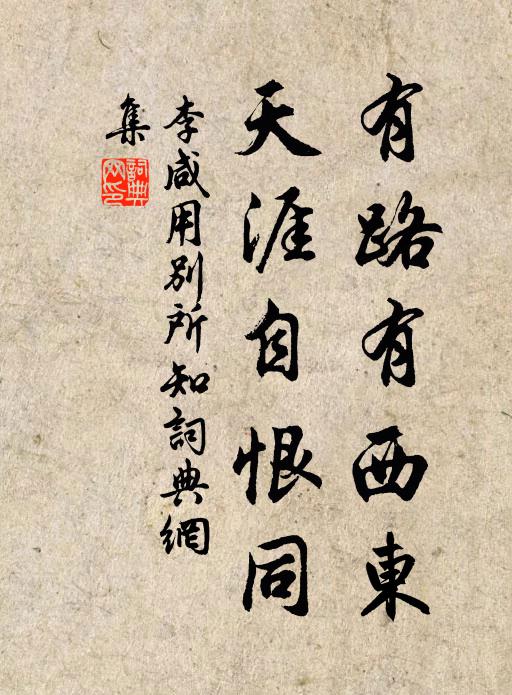 有路有西東
天涯自恨同
李咸用別所知詞典網
集
詞典網印